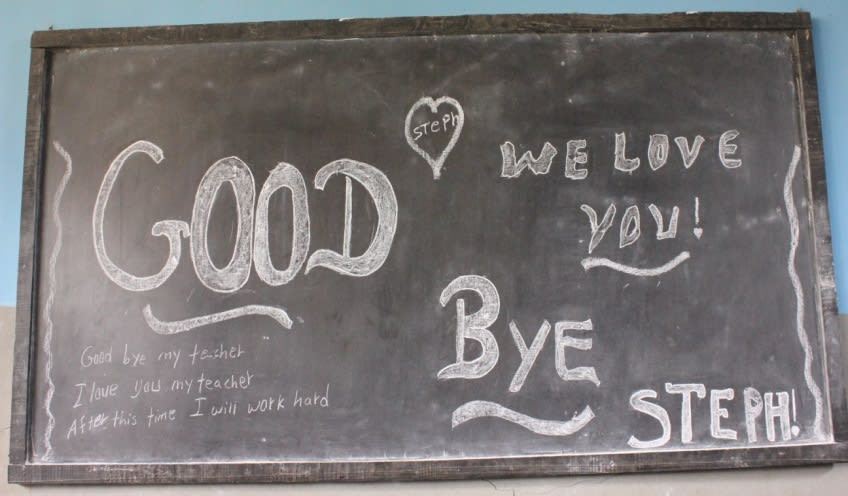 GOOD
BYE
STEPH!
Steph
WE LOVE
YOU!
Good bye my teacher
I love you my teacher
After this time I will work hard